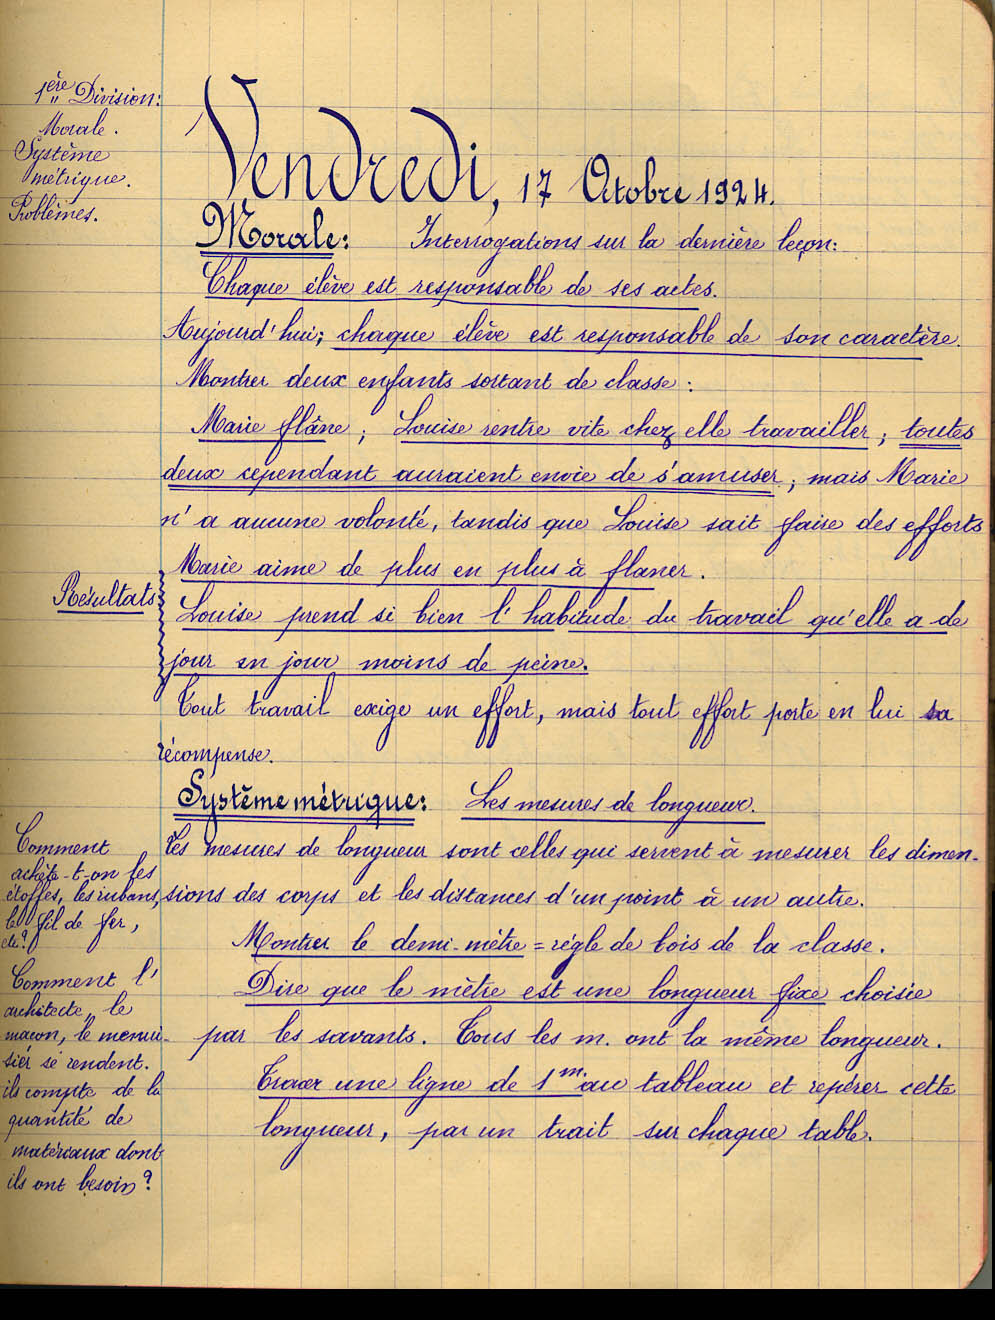 1ère Division:
Morale.
Système
métrique.
Problèmes.
Vendredi, 17 Octobre 1924.
Morale: Interrogations sur la dernière leçon:
Chaque élève est responsable de ses actes.
Aujourd'hui; chaque élève est responsable de son caractère.
Montrer deux enfants sortant de classe:
Marie flâne; Louise rentre vite chez elle travailler; toutes
deux cependant auraient envie de s'amuser; mais Marie
n'a aucune volonté, tandis que Louise sait faire des efforts
Marie aime de plus en plus à flaner.
Résultats
Louise prend si bien l'habitude du travail qu'elle a de
jour en jour moins de peine.
Tout travail exige un effort, mais tout effort porte en lui sa
récompense.
Système métrique: Les mesures de longueur.
Les mesures de longueur sont celles qui servent à mesurer les dimen-
sions des corps et les distances d'un point à un autre.
Montrer le demi-mètre = règle de bois de la classe.
Dire que le mètre est une longueur fixe choisie
par les savants. Tous les m. ont la même longueur.
Tracer une ligne de 1m. au tableau et repérer cette
longueur, par un trait sur chaque table.
Comment
achète-t-on les
étoffes, les rubans,
le fil de fer,
etc?
Comment l'
architecte, le
maçon, le menui-
sier se rendent.
ils compte de la
quantité de
matériaux dont
ils ont besoin?